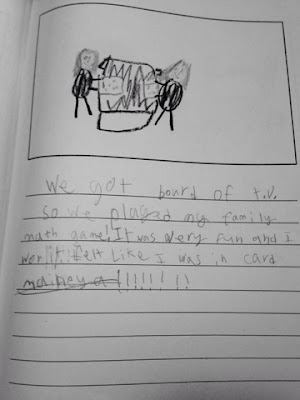 We got board of t.v.
so we played my family
math game! It was very fun and I
won!! felt like I was in card
!!!!!!!